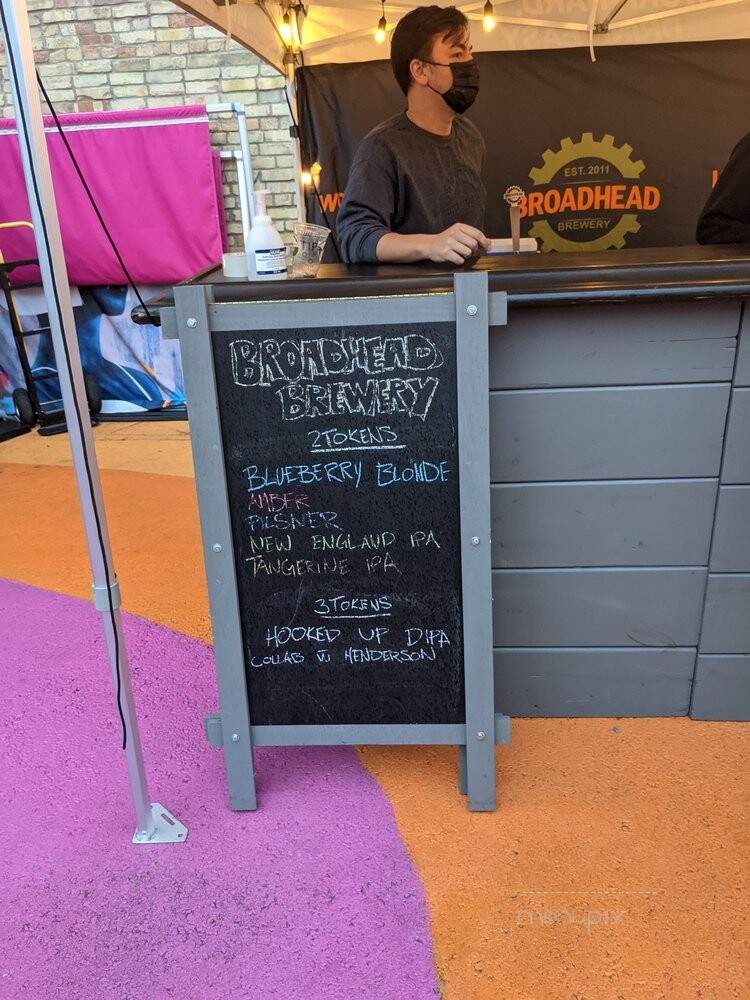 EST. 2011
BROADHEAD
BREWERY
TIPS
BROADHEAD
BREWERY
2TOKENS
BLUEBERRY BLONDE
AMBER
PILSNER
NEW ENGLAND IPA
TANGERINE IPA
3TOKENS
HOOKED UP DIPA
COLLAB W HENDERSON
menupix